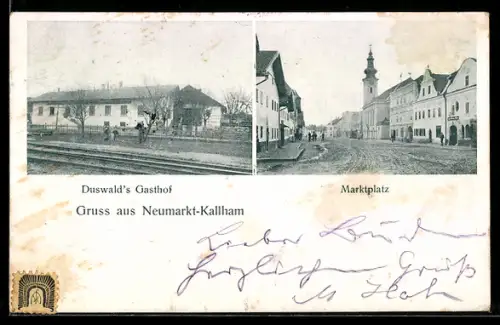 Duswald's Gasthof
Marktplatz
Gruss aus Neumarkt-Kallham
Lieber
Herzlichen Gruß